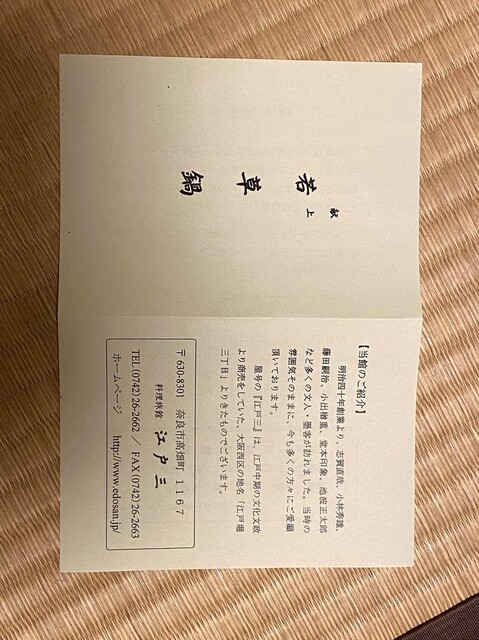 献上
若草鍋
【当館のご紹介】
明治四十年創業より、志賀直哉、小林秀雄、
藤田嗣治、小出楢重、堂本印象、池波正太郎
など多くの文人・墨客が訪れました。当時の
雰囲気そのままに、今も多くの方々にご愛顧
頂いております。
屋号の『江戸三』は、江戸中期の文化文政
より商売をしていた、大阪西区の地名「江戸堀
三丁目」よりきたものでございます。
〒630-8301 奈良市高畑町 1167
料理旅館 江戸三
TEL (0742) 26-2662 / FAX (0742) 26-2663
ホームページ http://www.edosan.jp/